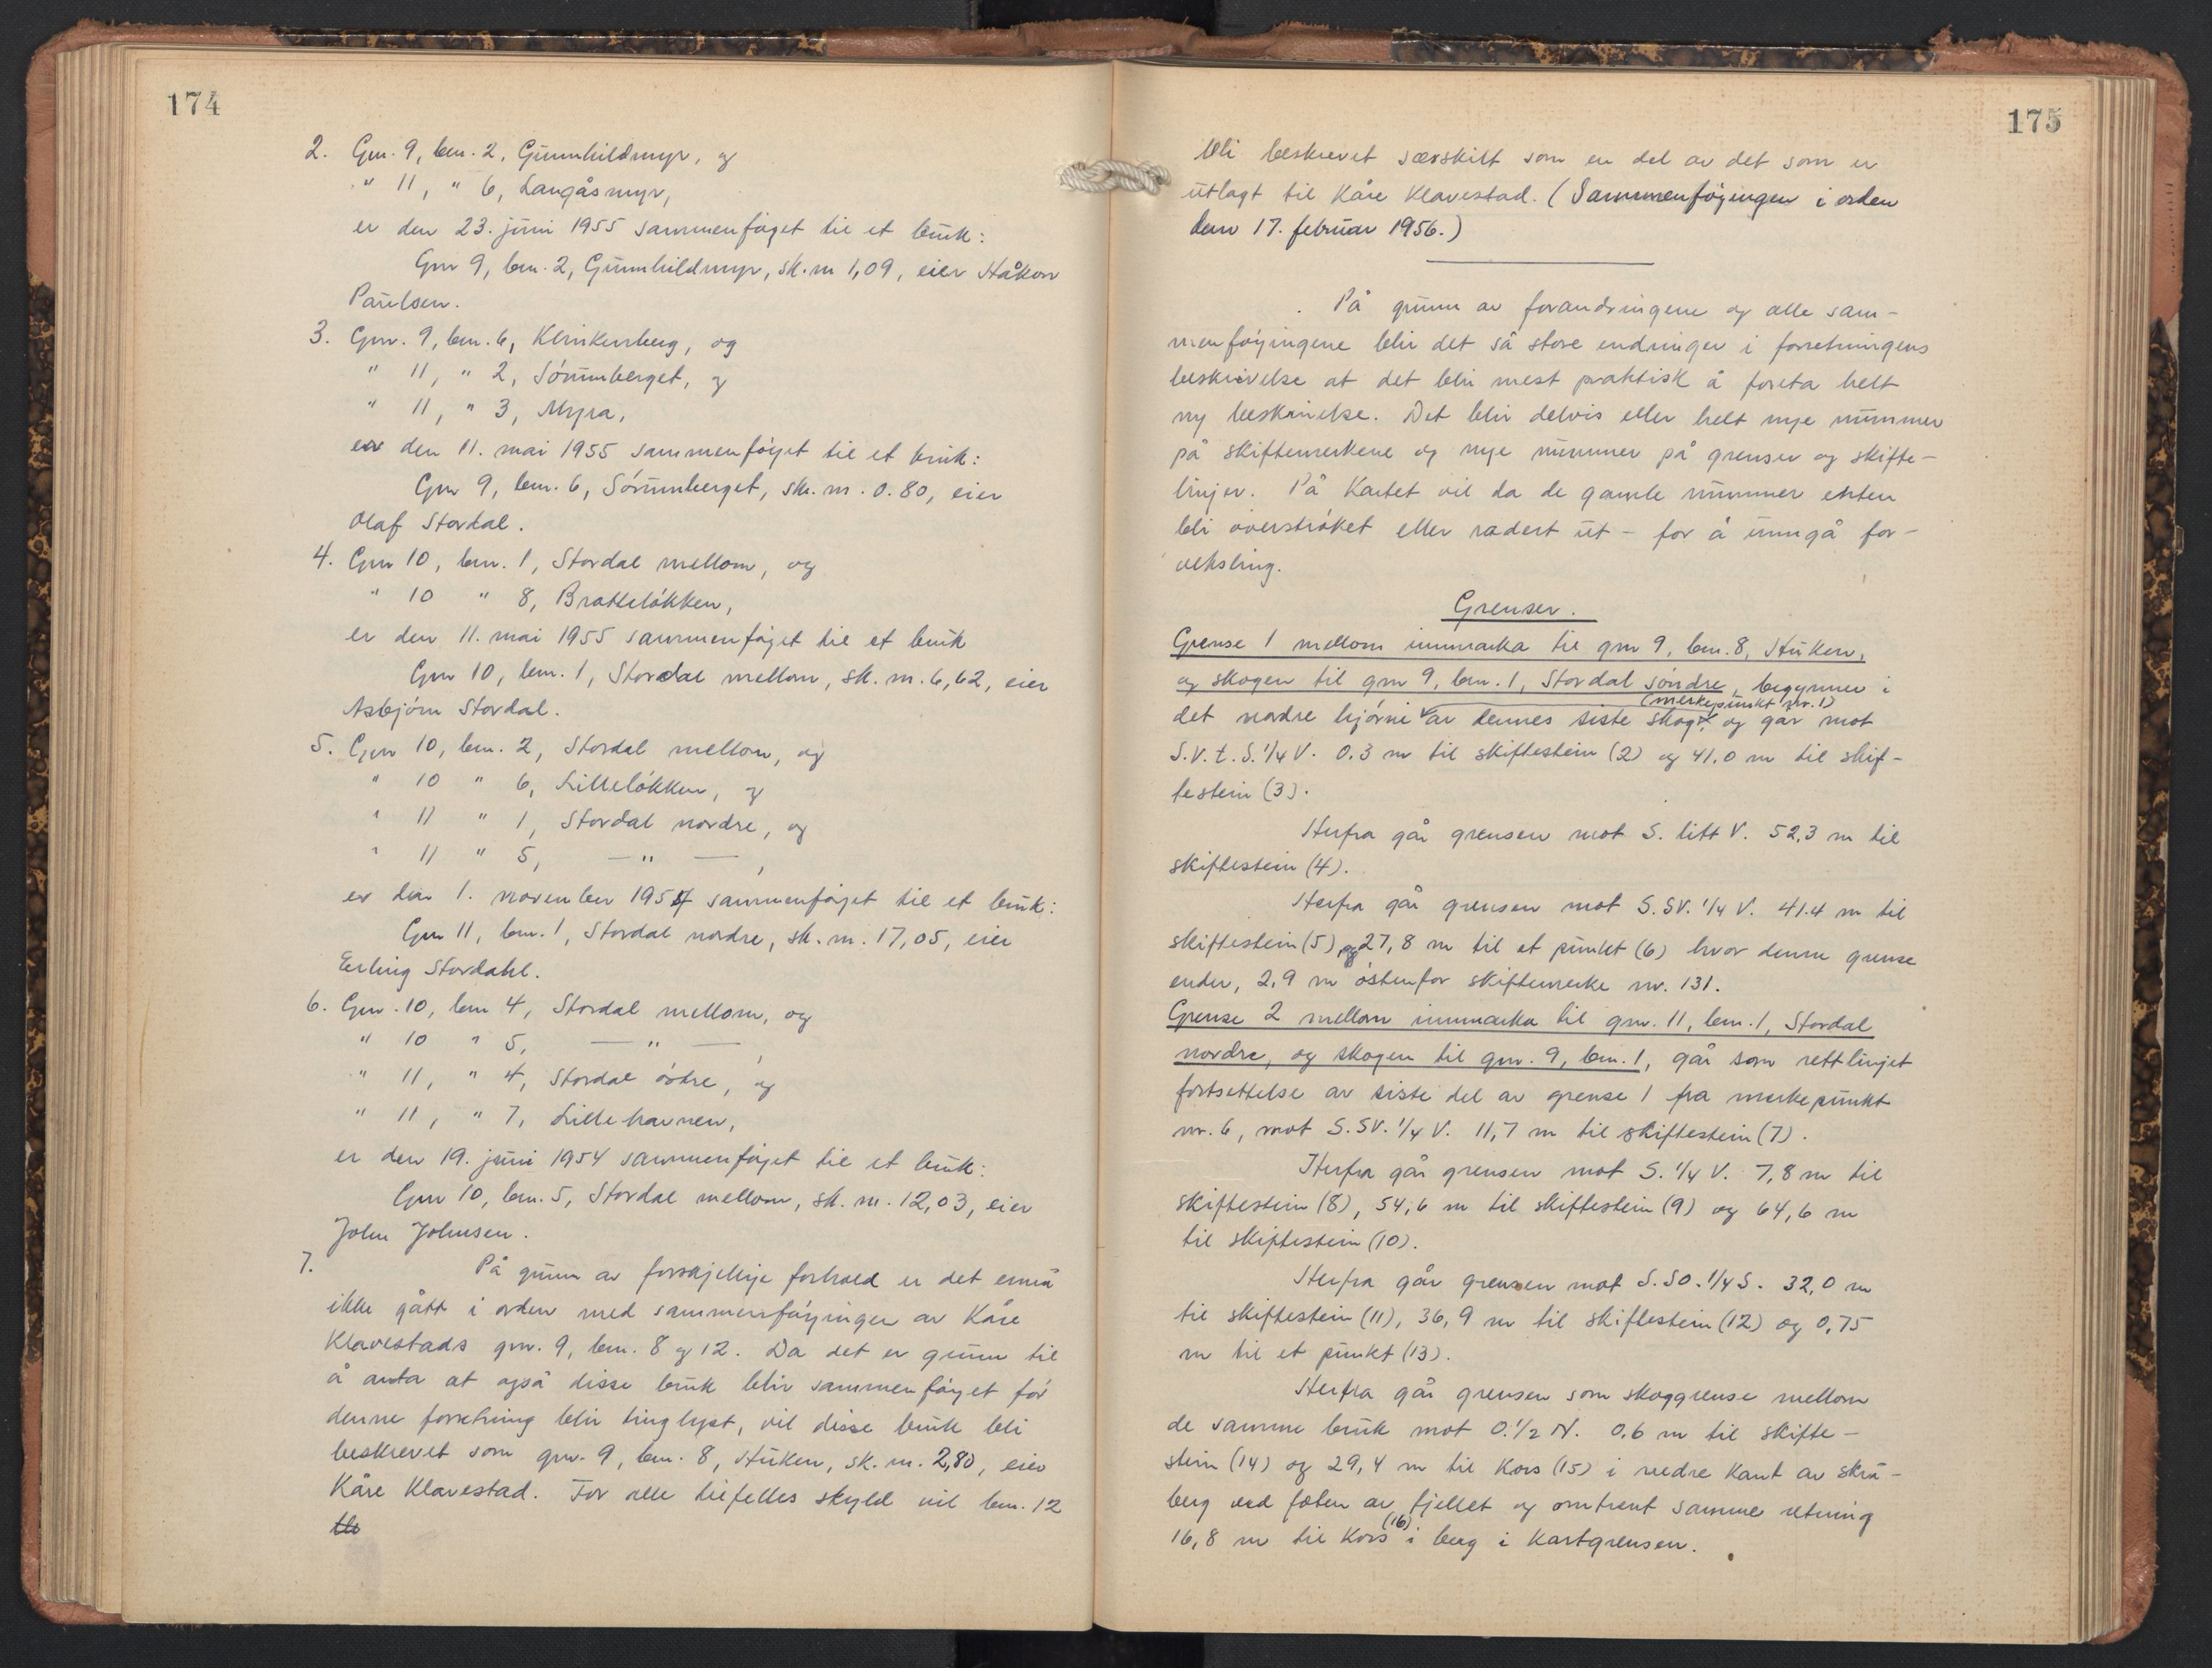 174
2. Gnr. 9, bnr. 2, Gunnhildmyr, og
" 11, " 6, Langåsmyr,
er den 23. juni 1955 sammenføyet til et bruk:
Gnr 9, bnr. 2, Gunnhildmyr, sk.m 1,09, eier Håkon
Paulsen.
3. Gnr. 9, bnr. 6, Klinkenberg, og
" 11, " 2, Sørumberget, og
" 11, " 3, Myra,
er den 11. mai 1955 sammenføyet til et bruk:
Gnr 9, bnr. 6, Sørumberget, sk. m. 0.80, eier
Olaf Stordal.
4. Gnr 10, bnr. 1, Stordal mellom, og
" 10 " 8, Bratteløkken,
er den 11. mai 1955 sammenføyet til et bruk
Gnr 10, bnr. 1, Stordal mellom, sk. m. 6,62, eier
Asbjørn Stordal.
5. Gnr 10, bnr. 2, Stordal mellom, og
" 10 " 6, Lilleløkken, og
" 11 " 1, Stordal nordre, og
" 11 " 5, — " — ,
er den 1. november 1954 sammenføyet til et bruk:
Gnr 11, bnr. 1, Stordal nordre, sk. m. 17,05, eier
Erling Stordahl.
6. Gnr. 10, bnr 4, Stordal mellom, og
" 10 " 5, — " — ,
" 11, " 4, Stordal østre, og
" 11, " 7, Lillehavnen,
er den 19. juni 1954 sammenføyet til et bruk:
Gnr 10, bnr. 5, Stordal mellom, sk. m. 12,03, eier
John Johnsen.
7. På grunn av forskjellige forhold er det ennå
ikke gått i orden med sammenføyinger av Kåre
Klavestads gnr. 9, bnr. 8 og 12. Da det er grunn til
å anta at også disse bruk blir sammenføyet før
denne forretning blir tinglyst, vil disse bruk bli
beskrevet som gnr. 9, bnr. 8, Huken, sk. m. 2,80, eier
Kåre Klavestad. For alle tilfelles skyld vil bnr. 12
175
bli beskrevet særskilt som en del av det som er
utlagt til Kåre Klavestad. (Sammenføyingen i orden
den 17. februar 1956.)
På grunn av forandringene og alle sam-
menføyingene blir det så store endringer i forretningens
beskrivelse at det blir mest praktisk å foreta helt
ny beskrivelse. Det blir delvis eller helt nye nummer
på skiftemerkene og nye nummer på grenser og skifte-
linjer. På kartet vil da de gamle nummer enten
bli overstrøket eller radert ut - for å unngå for-
veksling.
Grenser.
Grense 1 mellom innmarka til gnr 9, bnr. 8, Huken,
og skogen til gnr 9, bnr. 1, Stordal søndre, begynner i
(merkepunkt nr. 1)
det nordre hjørne av dennes siste skog, og går mot
S.V.t.S. 1/4 V. 0.3 m til skiftestein (2) og 41.0 m til skif-
testein (3).
Herfra går grensen mot S. litt V. 52,3 m til
skiftestein (4).
Herfra går grensen mot S.SV. 1/4 V. 41.4 m til
skiftestein (5) og 27,8 m til et punkt (6) hvor denne grense
ender, 2,9 m østenfor skiftemerke nr. 131.
Grense 2 mellom innmarka til gnr. 11, bnr. 1, Stordal
nordre, og skogen til gnr. 9, bnr. 1, går som rettlinjet
fortsettelse av siste del av grense 1 fra merkepunkt
nr. 6, mot S.SV. 1/4 V. 11,7 m til skiftestein (7).
Herfra går grensen mot S. 1/4 V. 7,8 m til
skiftestein (8), 54,6 m til skiftestein (9) og 64,6 m
til skiftestein (10).
Herfra går grensen mot S.SO. 1/4 S. 32,0 m
til skiftestein (11), 36,9 m til skiftestein (12) og 0,75
m til et punkt (13).
Herfra går grensen som skoggrense mellom
de samme bruk mot O. 1/2 N. 0.6 m til skifte-
stein (14) og 29,4 m til kors (15) i nedre kant av skrå-
berg ved foten av fjellet og omtrent samme retning
16,8 m til kors (16) i berg i kartgrensen.